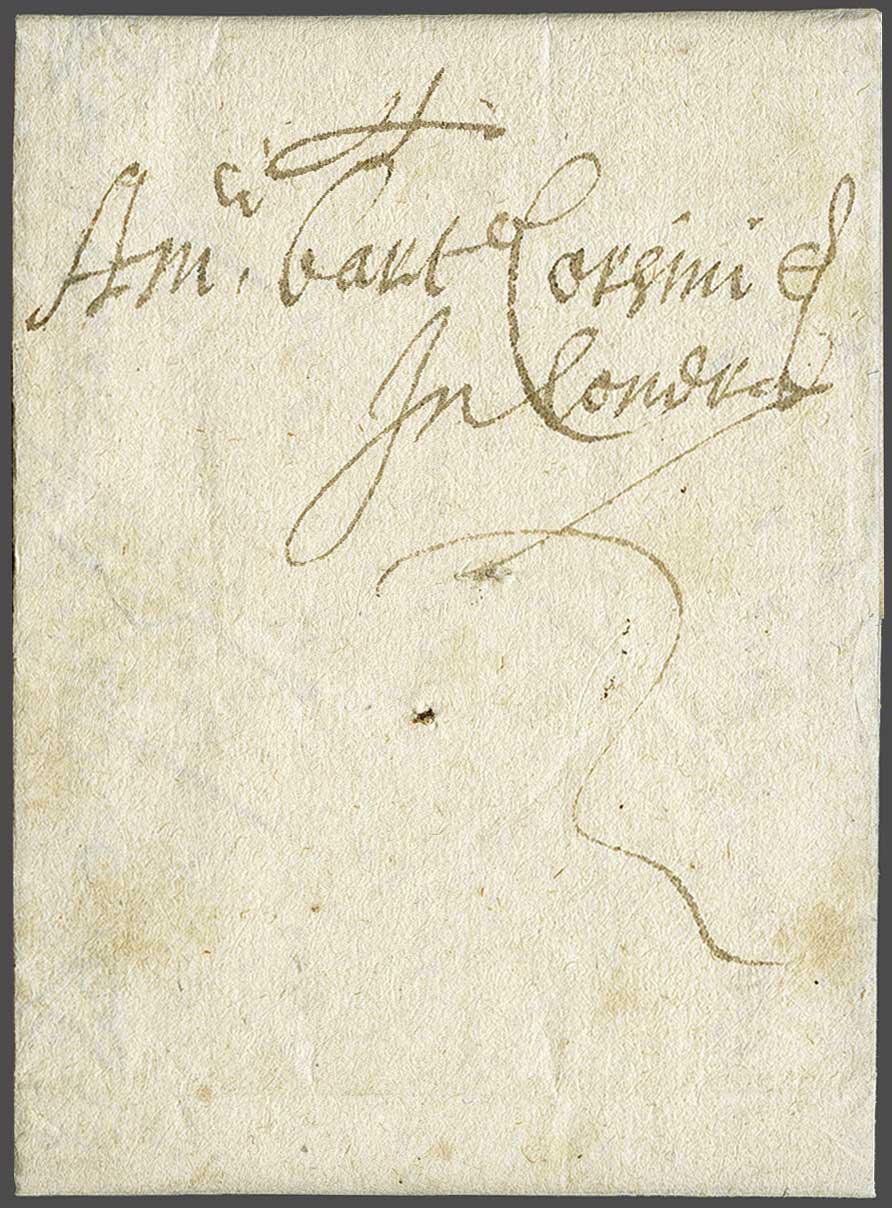 Am.ci Bart.o Corsini &
In Londra